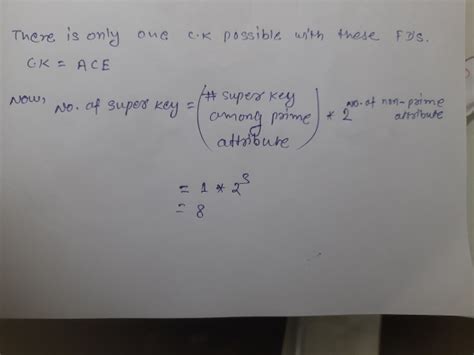 There is only one C.K possible with these FD's.
C.K = ACE
Now,
No. of super key = (# super key among prime attribute) * 2^No. of non-prime attribute
= 1 * 2^3
= 8